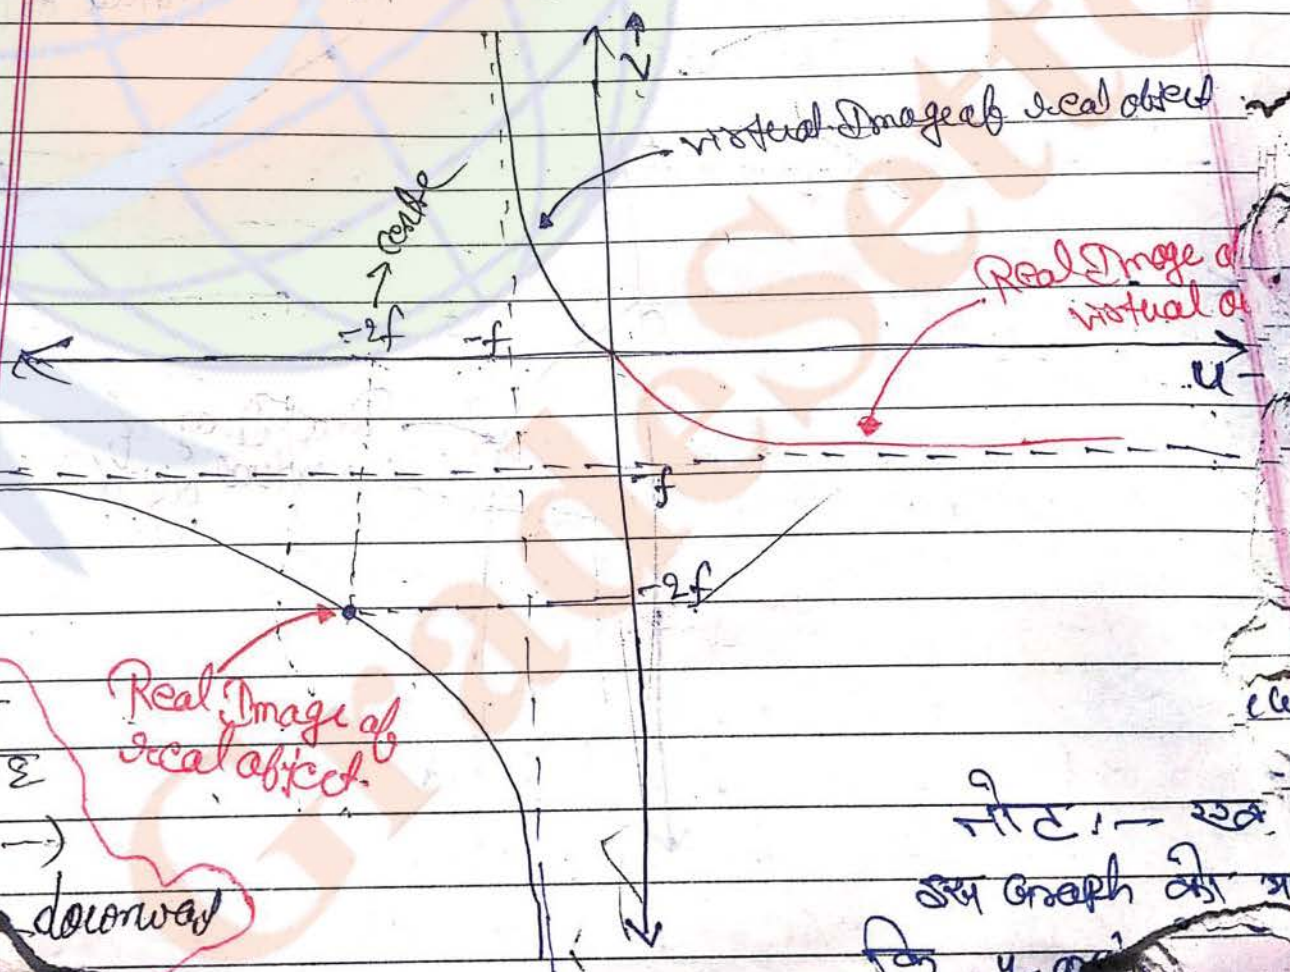 V
virtual Image of real object
→ centre
Real Image o
virtual o
-2f
-f
u -
-f
-2f
Real Image of
real object.
नोट :-
downward
इस Graph की
कि u
GradeSett